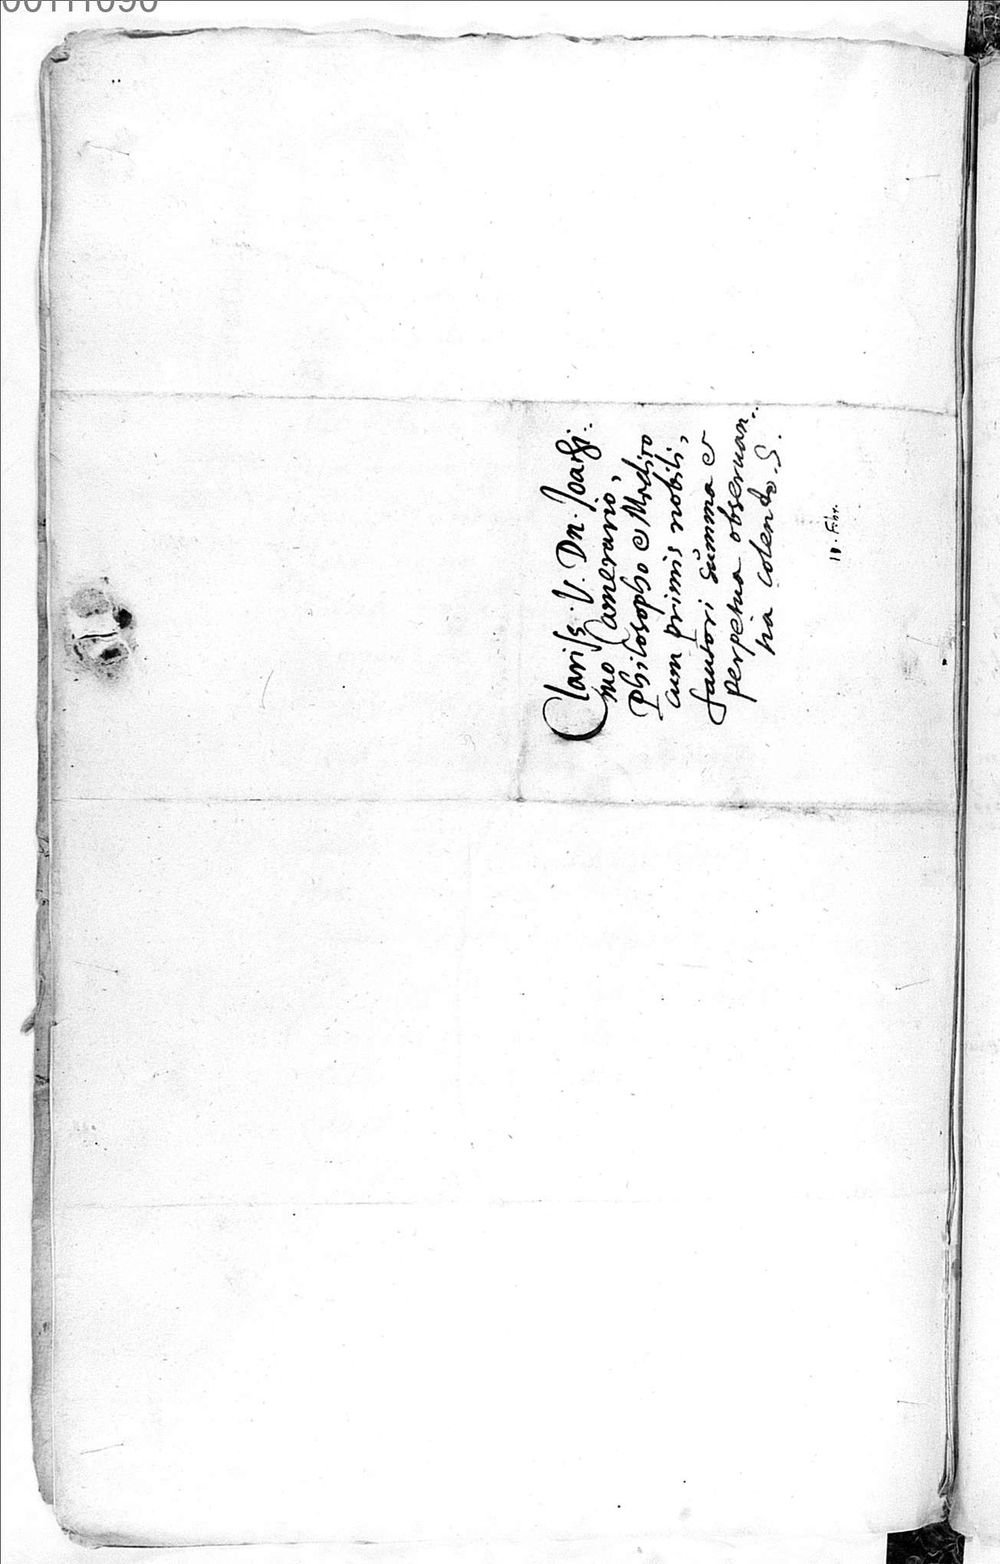 00111090
Clariss. V. Dn. Joachi-
mo Camerario,
Philosopho & Medico
cum primis nobili,
fautori summa &
perpetua observan-
tia colendo. S.
18. Febr.